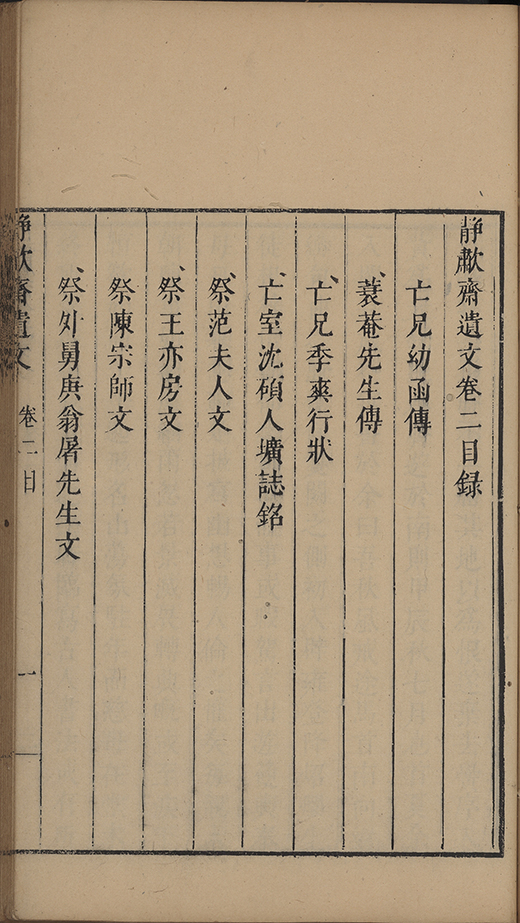 静歗齋遺文卷二目録
亡兄幼函傳
蓑菴先生傳
亡兄季爽行狀
亡室沈碩人壙誌銘
祭范夫人文
祭王亦房文
祭陳宗師文
祭外舅庚翁屠先生文
静歗齋遺文 卷二目 一